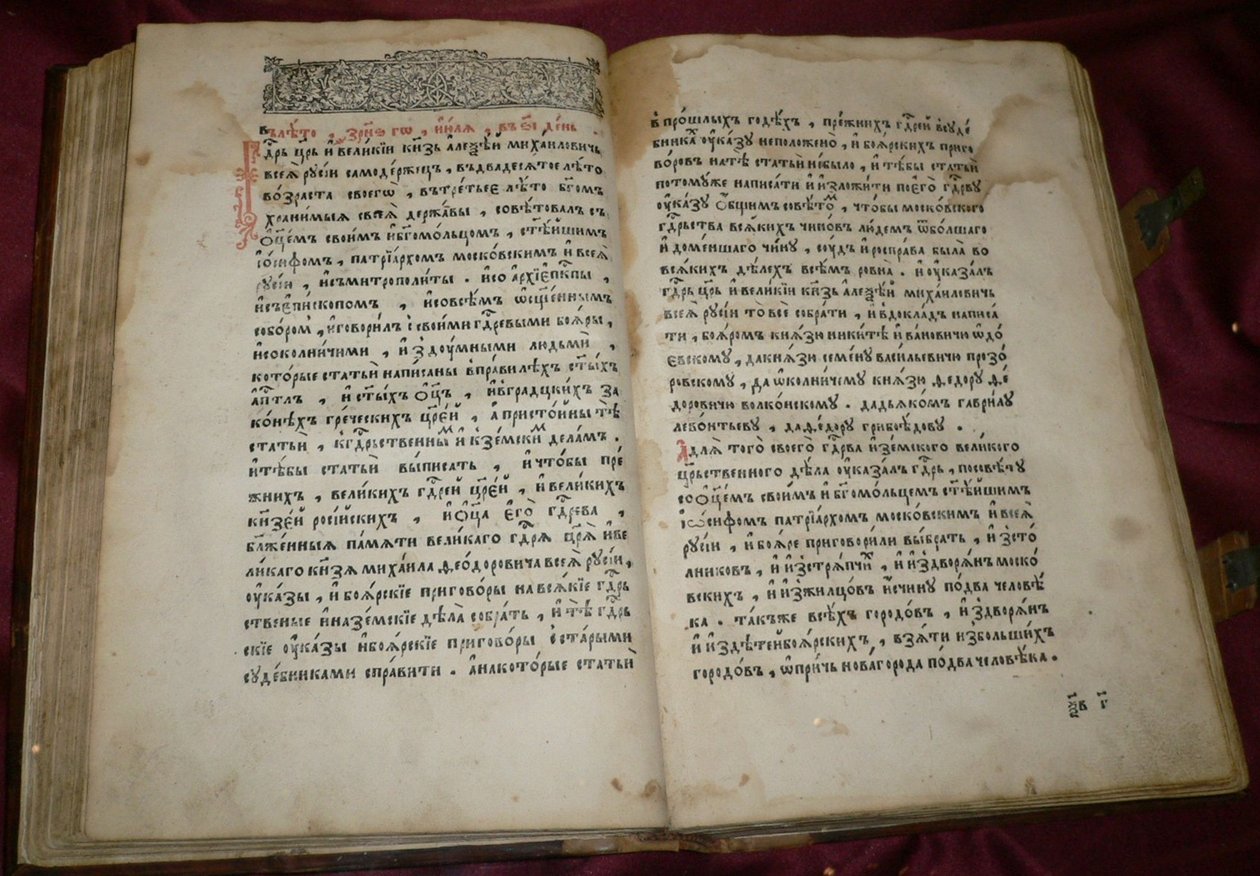 въ лѣто , зрн҃ѕ гѡ , и҆ю́лѧ , въ ѕ҃і де́нь .
гдⷭ҇рь цр҃ь и҆ вели́кїи кн҃зь а҆леѯѣ́й миха́иловичь
всеѧ̀ русі́и самоде́ржецъ , въдвадеся́тое лѣ́то
во́зраста своегѡ̀ , въ тре́тьеє лѣ́то бг҃омъ
храни́мыя своеѧ̀ держа́вы , совѣ́товалъ съ
ѻ҆ц҃е́мъ свои́мъ и҆ бг҃омо́льцомъ , ст҃ѣ́йшимъ
і҆ѡ́сифомъ , патрїа́рхомъ моско́вскимъ и҆ всеѧ̀
русі́и , и҆ съ митрополи́ты . и҆ со а҆рхїєпⷭ҇кпы ,
и҆ съ є҆пи́скопомъ , и҆ со всѣ́мъ ѡ҆сщ҃е́ннымъ
собо́ромъ , и҆ говори́лъ с свои́ми гдⷭ҇ревыми боѧ́ры ,
и҆ съ ѻ҆ко́лничими , и҆ з ду́мными людьмѝ ,
кото́рые статьѝ напи́саны в пра́вилѣхъ ст҃ы́хъ
а҆пⷭ҇тлъ , и҆ ст҃ы́хъ ѻ҆ц҃ъ , и҆ в гра́дцкихъ за
ко́нѣхъ гре́ческихъ цр҃е́й , а҆ присто́йны тѣ̀
статьѝ , к гдⷭ҇рьственнымъ и҆ к зе́мскимъ дѣла́мъ .
и҆ тѣ́бы статьѝ вы́писать , и҆ что́бы пре́
жнихъ , вели́кихъ гдⷭ҇ре́й цр҃е́й , и҆ вели́кихъ
кн҃зе́й росі́йскихъ , и҆ ѻ҆ц҃а̀ є҆гѡ̀ гдⷭ҇рева ,
бл҃же́нныѧ па́мѧти вели́каго гдⷭ҇рѧ цр҃ѧ̀ и҆ ве
ли́каго кн҃зѧ миха́ила ѳео́доровича всеѧ̀ русі́и ,
ѹ҆ка́зы , и҆ боѧ́рскїе пригово́ры на всѧ́кїе гдⷭ҇рь
ственые и҆ на зе́мскїе дѣла̀ собра́ть , и҆ тѣ̀ гдⷭ҇рь
скїе ѹ҆ка́зы и҆ боѧ́рскїе пригово́ры с ста́рыми
суде́бниками спра́вити . а҆ на кото́рые статьѝ
в про́шлыхъ годѣ́хъ , пре́жнихъ гдⷭ҇ре́й в суде́
бникахъ ѹ҆ка́зу не поло́женѡ , и҆ боѧ́рскихъ приго
во́ровъ на тѣ̀ статьѝ не́было , и҆ тѣ́бы статьѝ
потому́же написа́ти и҆ и҆зложи́ти по є҆го̀ гдⷭ҇рву
ѹ҆ка́зу ѻ҆́бщимъ совѣ́томъ , что́бы моско́вского
гдⷭ҇рьства всѧ́кихъ чино́въ лю́демъ ѿ бо́лшаго
и҆ до ме́ншаго чи́ну , су́дъ и҆ роспра́ва была̀ во
всѧ́кихъ дѣ́лехъ всѣ́мъ ровна̀ . и҆ ѹ҆каза́лъ
гдⷭ҇рь цр҃ь и҆ вели́кїи кн҃зь а҆леѯѣ́й миха́иловичь
всеѧ̀ русі́и то всѐ собра́ти , и҆ в докла́дъ написа́
ти , боѧ́ромъ кнѧ́зю ники́тѣ и҆ва́новичю ѻ҆до́
євскому , да кнѧ́зю семе́ну васи́льевичю прозо́
ровскому , да ѻ҆ко́лничему кнѧ́зю ѳе́дору ѳе́
доровичю волко́нскому . да дьѧко́мъ гаври́лу
лево́нтьеву , да ѳе́дору грибоѣ́дову .
А длѧ̀ того̀ своего̀ гдⷭ҇рва и҆ зе́мского вели́кого
црⷭ҇твенного дѣ́ла ѹ҆каза́лъ гдⷭ҇рь , по совѣ́ту
со ѻ҆ц҃е́мъ свои́мъ и҆ бг҃омо́льцемъ ст҃ѣ́йшимъ
і҆ѡ́сифомъ патрїа́рхомъ моско́вскимъ и҆ всеѧ̀
русі́и , и҆ боѧ́ре пригово́рили вы́брать , и҆зъ сто́
лниковъ , и҆ и҆зъ стрѧ́пчихъ , и҆ и҆зъ дворѧ́нъ моско́
вскихъ , и҆ и҆зъ жилцо́въ и҆с чи́ну по́ два человѣ́
ка . та́кже всѣ́хъ городо́въ , и҆зъ дворѧ́нъ
и҆ и҆зъ дѣте́й боѧ́рскихъ , взѧ́ти и҆з больши́хъ
городо́въ , ѡ҆при́чь новагорода по́ два человѣ́ка .